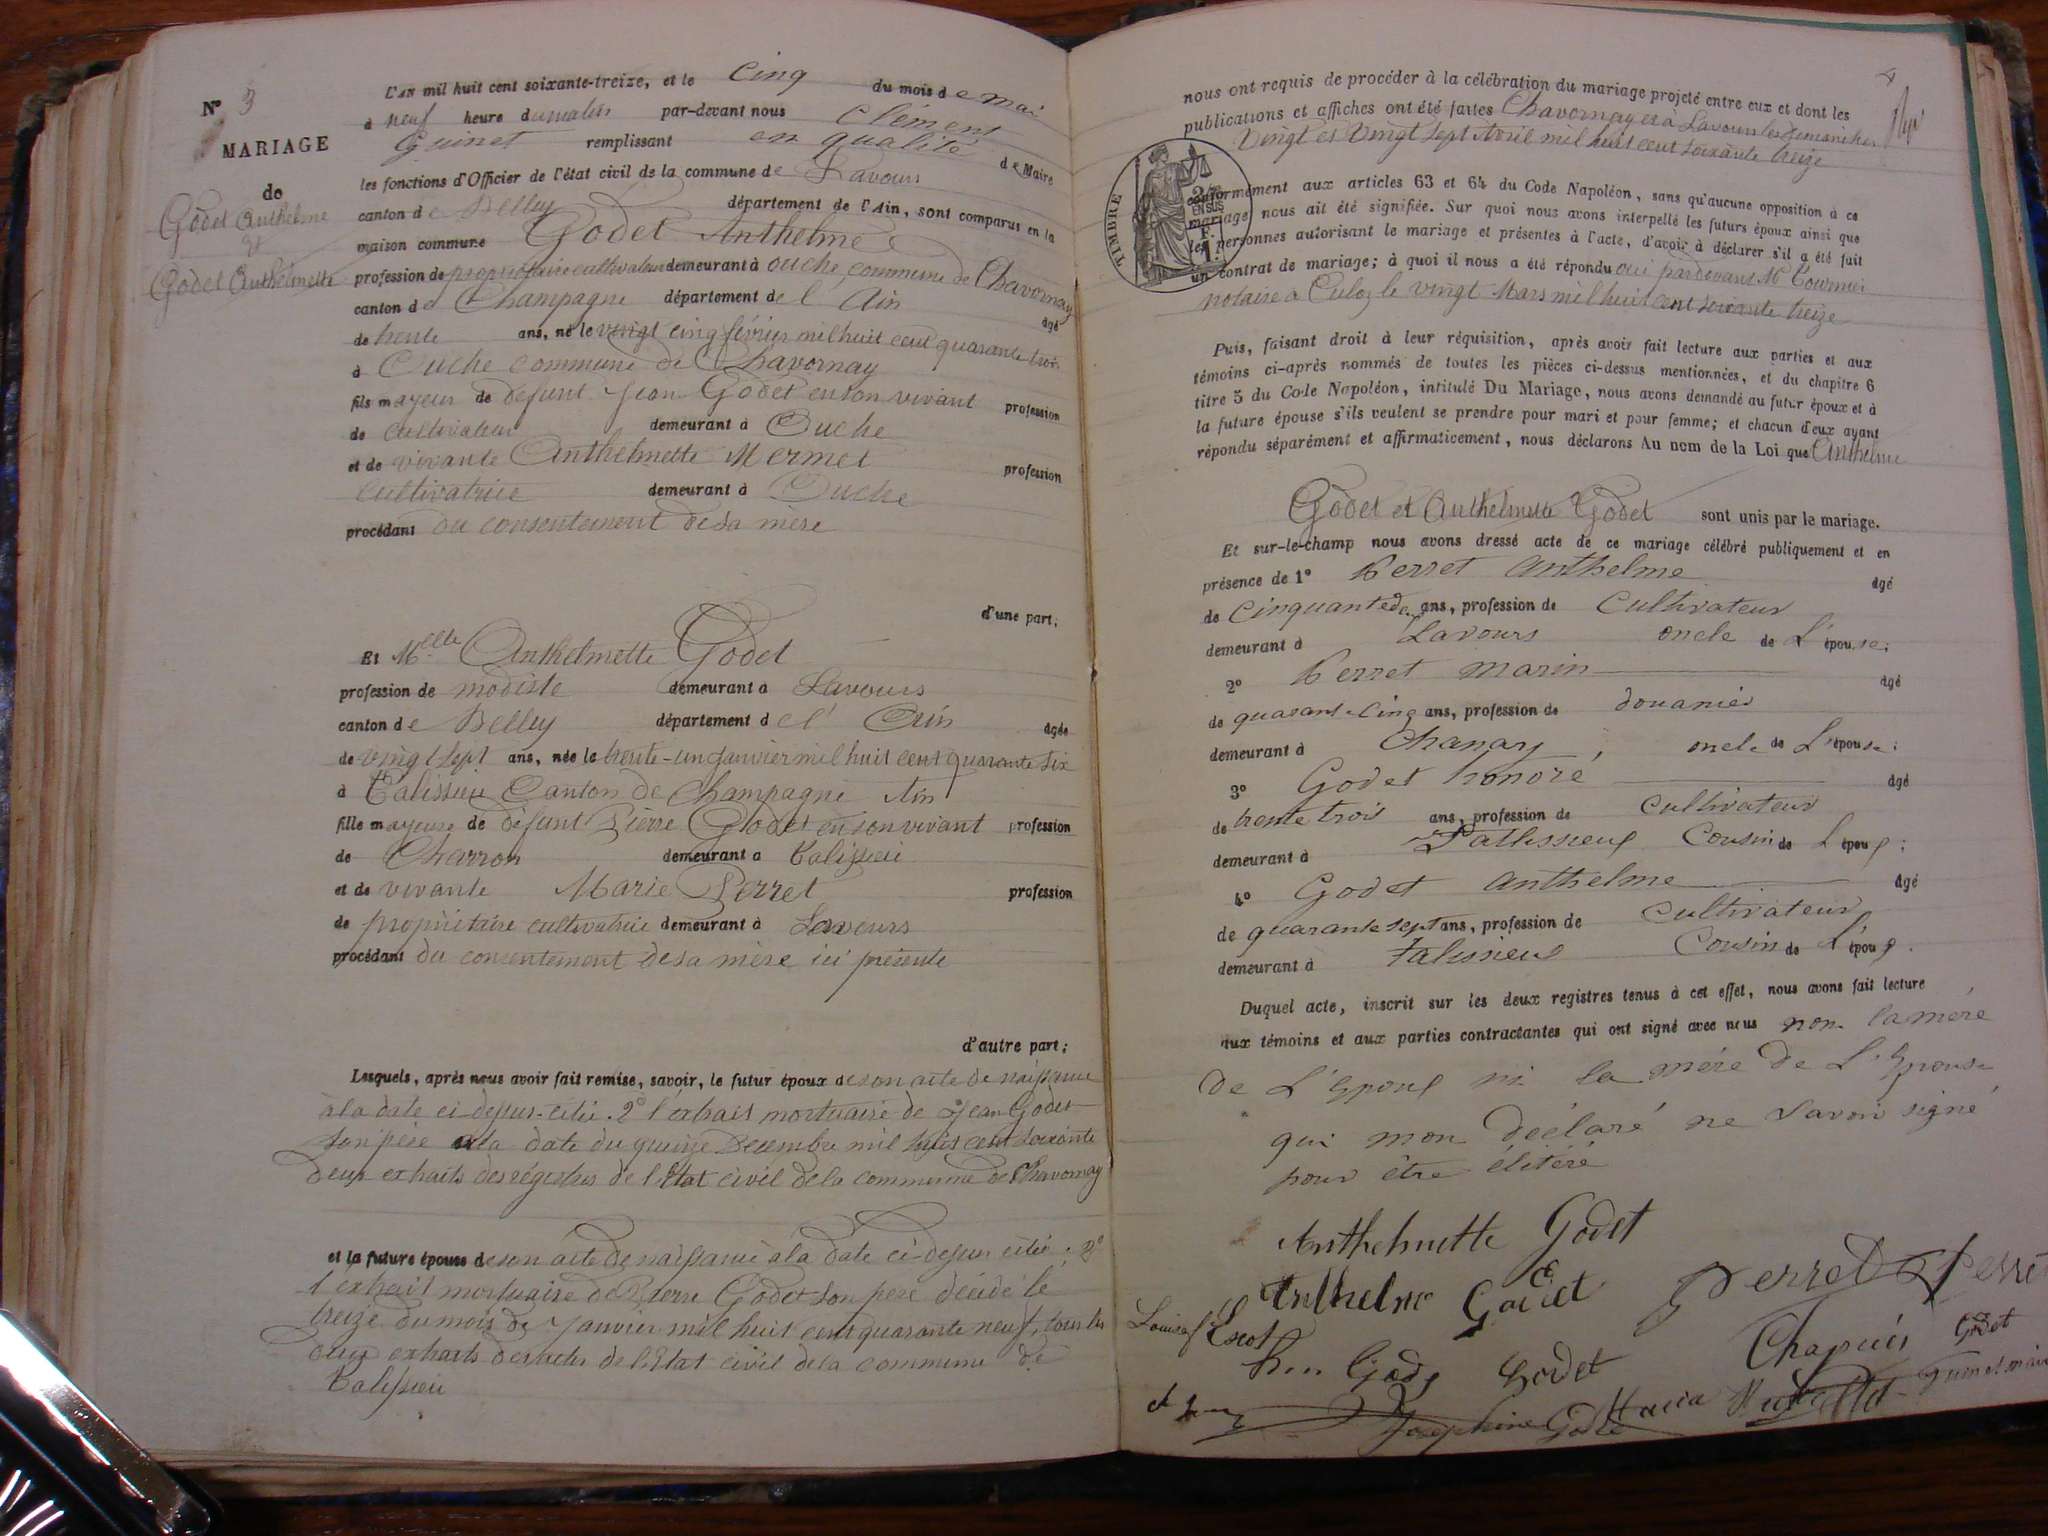 N° 3
MARIAGE
de
Godet Anthelme
et
Godet Anthelmette
L'AN mil huit cent soixante-treize, et le Cinq du mois de Mai
à neuf heure du matin par-devant nous Clément
Guinet remplissant en qualité de Maire
les fonctions d'Officier de l'état civil de la commune de Lavours
canton de Belley département de l'Ain, sont comparus en la
maison commune Godet Anthelme
profession de propriétaire cultivateur demeurant à Ouche, commune de Chavornay
canton de Champagne département de l'Ain âgé
de trente ans, né le vingt cinq février mil huit cent quarante trois
à Ouche commune de Chavornay
fils mayeur de défunt Jean Godet en son vivant profession
de cultivateur demeurant à Ouche
et de vivante Anthelmette Mermet profession
Cultivatrice demeurant à Ouche
procédant du consentement de sa mère
d'une part;
Et Melle Anthelmette Godet
profession de modiste demeurant à Lavours
canton de Belley département de l'Ain âgée
de vingt sept ans, née le trente-un Janvier mil huit cent quarante six
à Talissieu Canton de Champagne Ain
fille mayeure de défunt Pierre Godet en son vivant profession
de Charron demeurant à Talissieu
et de vivante Marie Perret profession
de propriétaire cultivatrice demeurant à Lavours
procédant du consentement de sa mère ici présente
d'autre part;
Lesquels, après nous avoir fait remise, savoir, le futur époux de son acte de naissance
à la date ci dessus citée. 2° l'extrait mortuaire de Jean Godet
son père à la date du quinze Décembre mil huit cent soixante
deux extraits des régistres de l'Etat civil de la commune de Chavornay
et la future épouse de son acte de naissance à la date ci dessus citée. 2°
l'extrait mortuaire de Pierre Godet son père décédé le
treize du mois de Janvier mil huit cent quarante neuf, tous les
deux extraits des actes de l'Etat civil de la commune de
Talissieu
nous ont requis de procéder à la célébration du mariage projeté entre eux et dont les
publications et affiches ont été faites Chavornay et à Lavours les dimanches
Vingt et Vingt sept Avril mil huit cent soixante treize
conformément aux articles 63 et 64 du Code Napoléon, sans qu'aucune opposition à ce
mariage nous ait été signifiée. Sur quoi nous avons interpellé les futurs époux ainsi que
les personnes autorisant le mariage et présentes à l'acte, d'avoir à déclarer s'il a été fait
un contrat de mariage; à quoi il nous a été répondu oui pardevant Me Tournier
notaire à Culoz le vingt Mars mil huit cent soixante treize
TIMBRE
EN SUS
Puis, faisant droit à leur réquisition, après avoir fait lecture aux parties et aux
témoins ci-après nommés de toutes les pièces ci-dessus mentionnées, et du chapitre 6
titre 5 du Code Napoléon, intitulé Du Mariage, nous avons demandé au futur époux et à
la future épouse s'ils veulent se prendre pour mari et pour femme; et chacun d'eux ayant
répondu séparément et affirmativement, nous déclarons Au nom de la Loi que Anthelme
Godet et Anthelmette Godet sont unis par le mariage.
Et sur-le-champ nous avons dressé acte de ce mariage célébré publiquement et en
présence de 1° Perret Anthelme âgé
de Cinquante de ans, profession de Cultivateur
demeurant à Lavours oncle de L'épouse;
2° Perret Marin âgé
de quarant-Cinq ans, profession de douanier
demeurant à Chanay, oncle de L'épouse;
3° Godet honoré âgé
de trente trois ans, profession de Cultivateur
demeurant à Tallissieux Cousin de L'époux;
4° Godet Anthelme âgé
de quarante sept ans, profession de Cultivateur
demeurant à Talissieux Cousin de L'époux.
Duquel acte, inscrit sur les deux registres tenus à cet effet, nous avons fait lecture
aux témoins et aux parties contractantes qui ont signé avec nous non la mère
de L'Epoux ni la mère de L'Epouse
qui mon déclaré ne Savoir signé
pour être élitéré
Anthelmette Godet
Anthelme Godet Perret Perret
Louise Escot
Godet Chapuis Godet
Guinet maire
Josephine Godet Maria